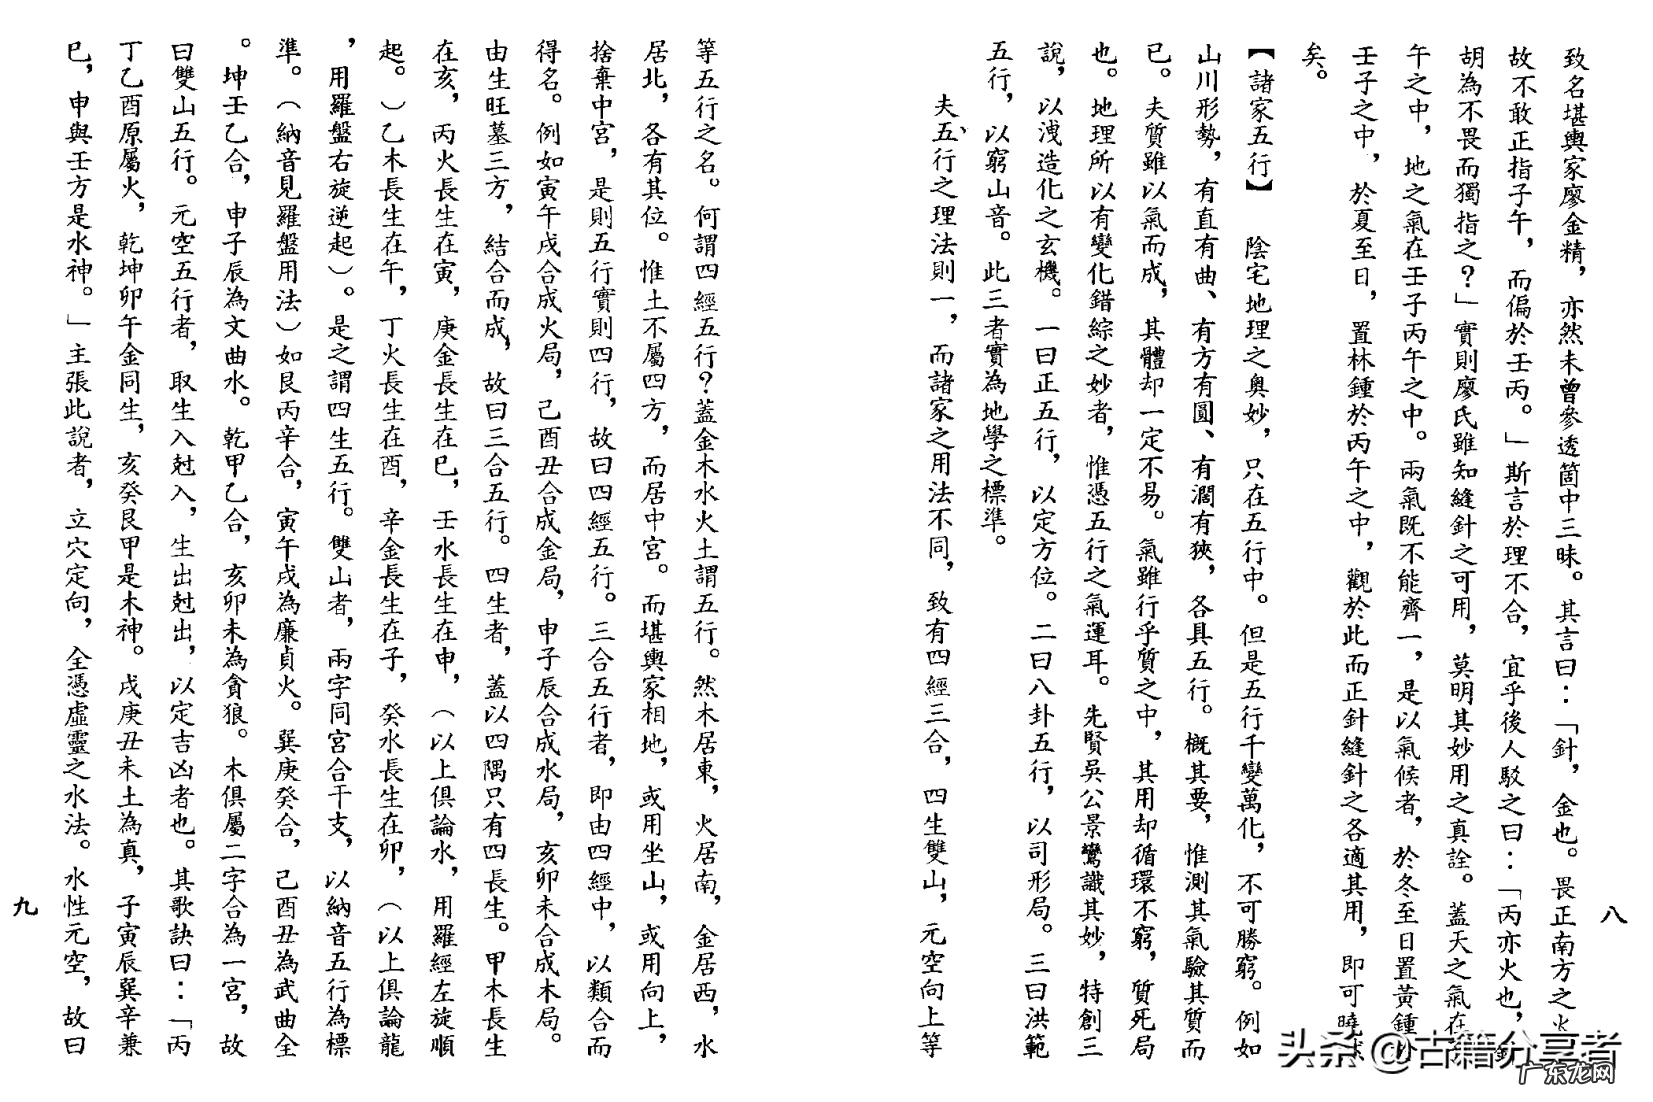 致名堪輿家廖金精，亦然未曾參透箇中三昧。其言曰：「針，金也。畏正南方之火
故不敢正指子午，而偏於壬丙。」斯言於理不合，宜乎後人駁之曰：「丙亦火也，
胡為不畏而獨指之？」實則廖氏雖知縫針之可用，莫明其妙用之真詮。蓋天之氣在
午之中，地之氣在壬子丙午之中。兩氣既不能齊一，是以氣候者，於冬至日置黃鍾
壬子之中，於夏至日，置林鍾於丙午之中，觀於此而正針縫針之各適其用，即可曉
矣。
【諸家五行】　陰宅地理之奧妙，只在五行中。但是五行千變萬化，不可勝窮。例如
山川形勢，有直有曲、有方有圓、有濶有狹，各具五行。概其要，惟測其氣驗其質而
已。夫質雖以氣而成，其體却一定不易。氣雖行乎質之中，其用却循環不窮，質死局
也。地理所以有變化錯綜之妙者，惟憑五行之氣運耳。先賢吳公景鸞識其妙，特創三
說，以洩造化之玄機。一曰正五行，以定方位。二曰八卦五行，以司形局。三曰洪範
五行，以窮山音。此三者實為地學之標準。
夫五行之理法則一，而諸家之用法不同，致有四經三合，四生雙山，元空向上等
八
等五行之名。何謂四經五行？蓋金木水火土謂五行。然木居東，火居南，金居西，水
居北，各有其位。惟土不屬四方，而居中宮。而堪輿家相地，或用坐山，或用向上，
捨棄中宮，是則五行實則四行，故曰四經五行。三合五行者，即由四經中，以類合而
得名。例如寅午戌合成火局，己酉丑合成金局，申子辰合成水局，亥卯未合成木局。
由生旺墓三方，結合而成，故曰三合五行。四生者，蓋以四隅只有四長生。甲木長生
在亥，丙火長生在寅，庚金長生在巳，壬水長生在申，（以上俱論水，用羅經左旋順
起。）乙木長生在午，丁火長生在酉，辛金長生在子，癸水長生在卯，（以上俱論龍
，用羅盤右旋逆起）。是之謂四生五行。雙山者，兩字同宮合干支，以納音五行為標
準。（納音見羅盤用法）如艮丙辛合，寅午戌為廉貞火。巽庚癸合，己酉丑為武曲金
。坤壬乙合，申子辰為文曲水。乾甲乙合，亥卯未為貪狼。木俱屬二字合為一宮，故
曰雙山五行。元空五行者，取生入尅入，生出尅出，以定吉凶者也。其歌訣曰：「丙
丁乙酉原屬火，乾坤卯午金同生，亥癸艮甲是木神。戌庚丑未土為真，子寅辰巽辛兼
巳，申與壬方是水神。」主張此說者，立穴定向，全憑虛靈之水法。水性元空，故曰
九
头条@古籍分享者
广东龙网